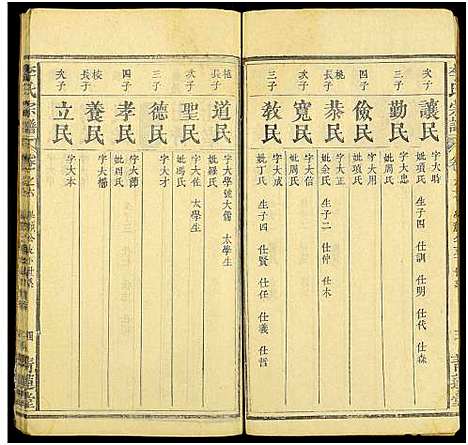 次子
讓民
字大時
妣項氏 生子四 仕訓 仕明 仕代 仕森
三子
勤民
字大忠
四子
儉民
字大用
妣項氏
桃長子
恭民
字大正
妣余氏 生子二 仕仲 仕木
次子
寬民
字大信
妣周氏
三子
教民
妣丁氏 生子四 仕賢 仕任 仕義 仕哲
李氏宗譜
青蓮堂
桃長子
道民
字大學號大儒 太學生
妣羅氏
次子
聖民
字大任 太學生
三子
德民
字大才
四子
孝民
妣周氏
校長子
養民
字大德
次子
立民
字大本